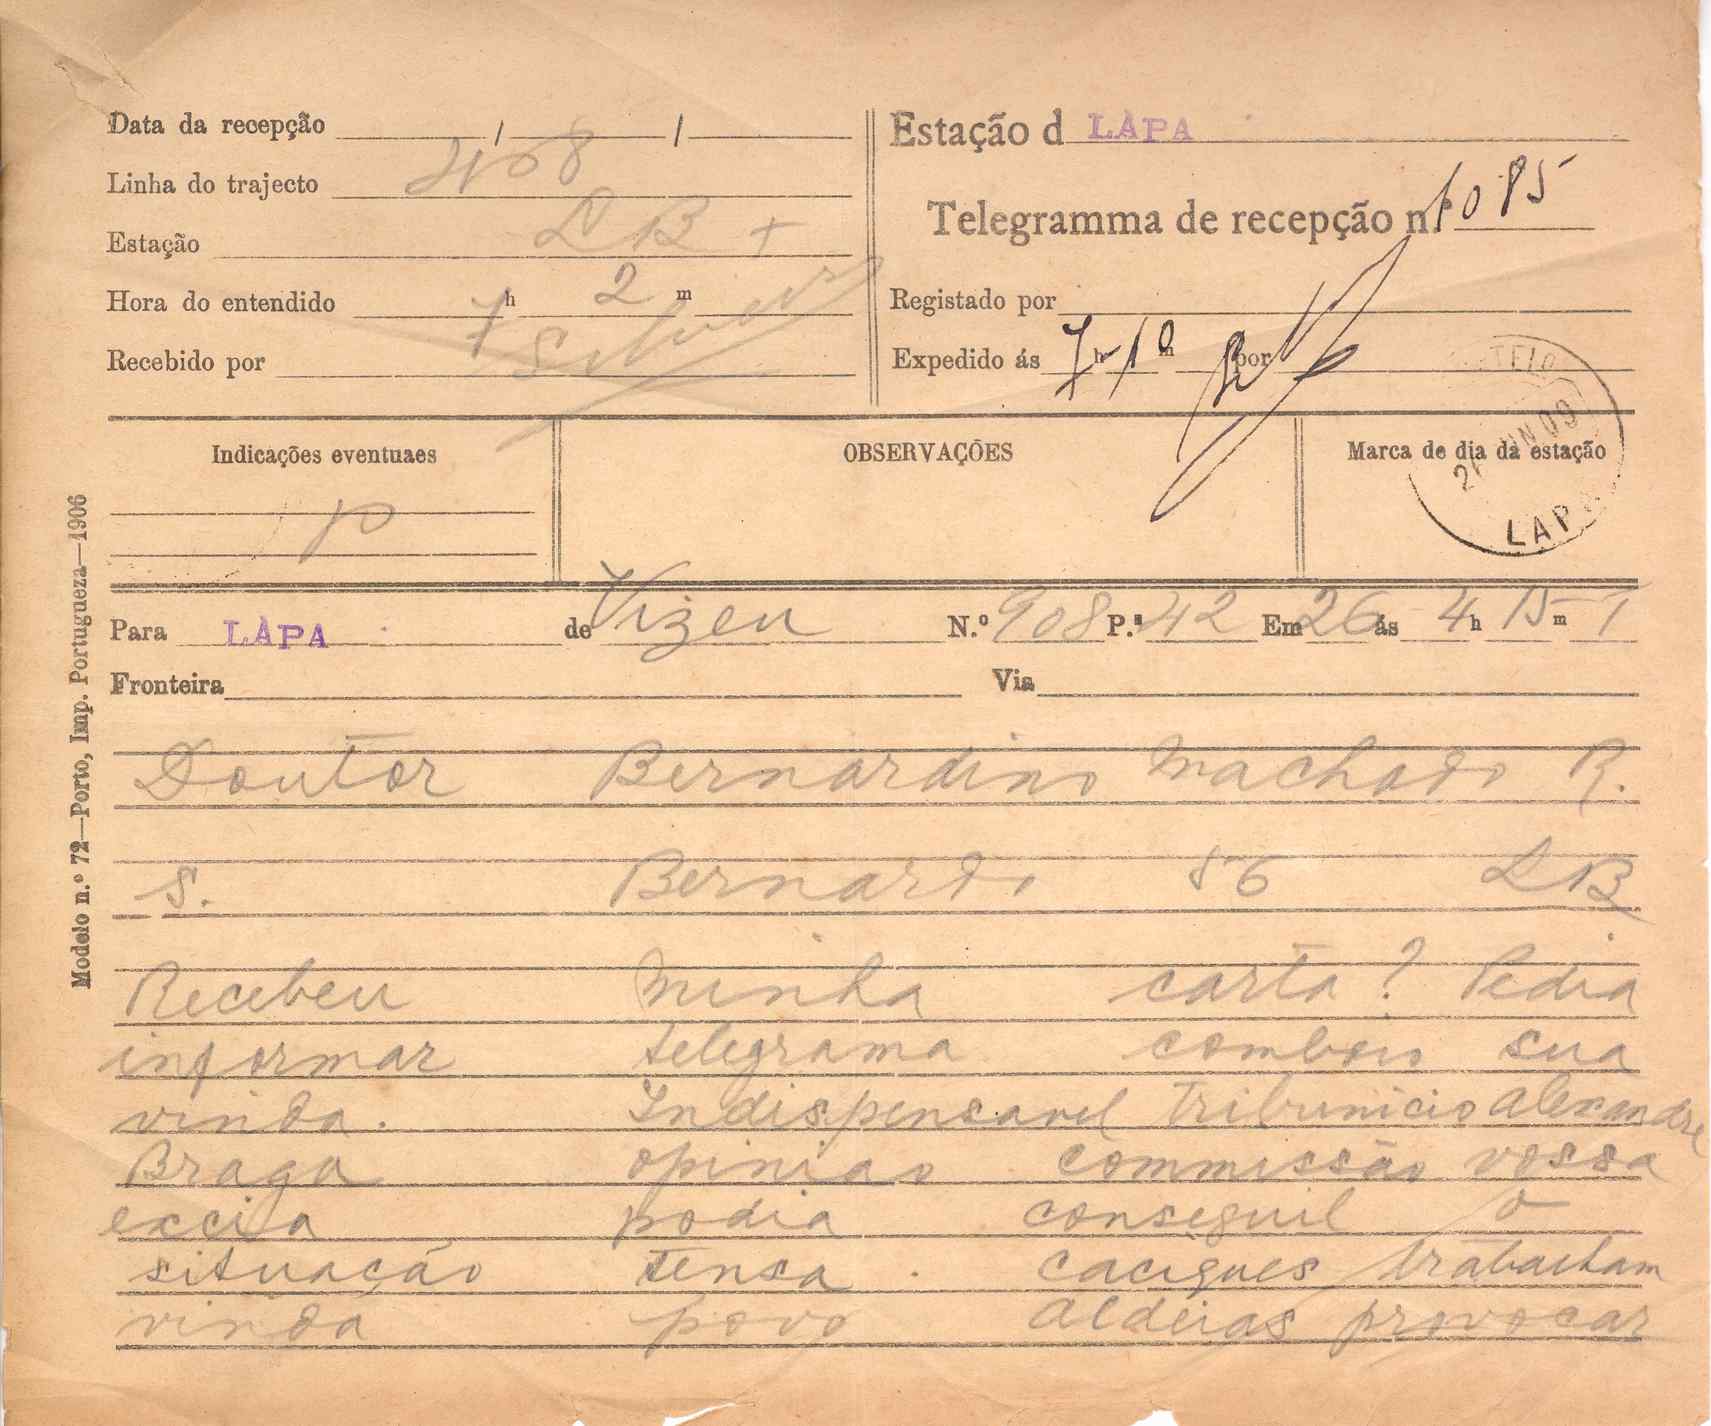 Data da recepção / /
Linha do trajecto 468
Estação LB +
Hora do entendido 7 h 2 m
Recebido por
Estação d LAPA
Telegramma de recepção n.º 1085
Registado por
Expedido ás 7 h 10 m por
Indicações eventuaes
P
OBSERVAÇÕES
Marca de dia da estação
09
LAPA
Modelo n.º 72—Porto, Imp. Portugueza—1906
Para LAPA de Vizeu N.º 908 P.as 42 Em 26 ás 4 h 15 m T
Fronteira Via
Doutor Bernardino Machado R.
S. Bernardo 56 LB
Recebeu minha carta? Pedia
informar telegrama comboio sua
vinda. Indispensavel tribunicio Alexandre
Braga opiniao commissão vossa
excia podia conseguil o
situação tensa. caciques trabalham
vinda povo aldeias provocar